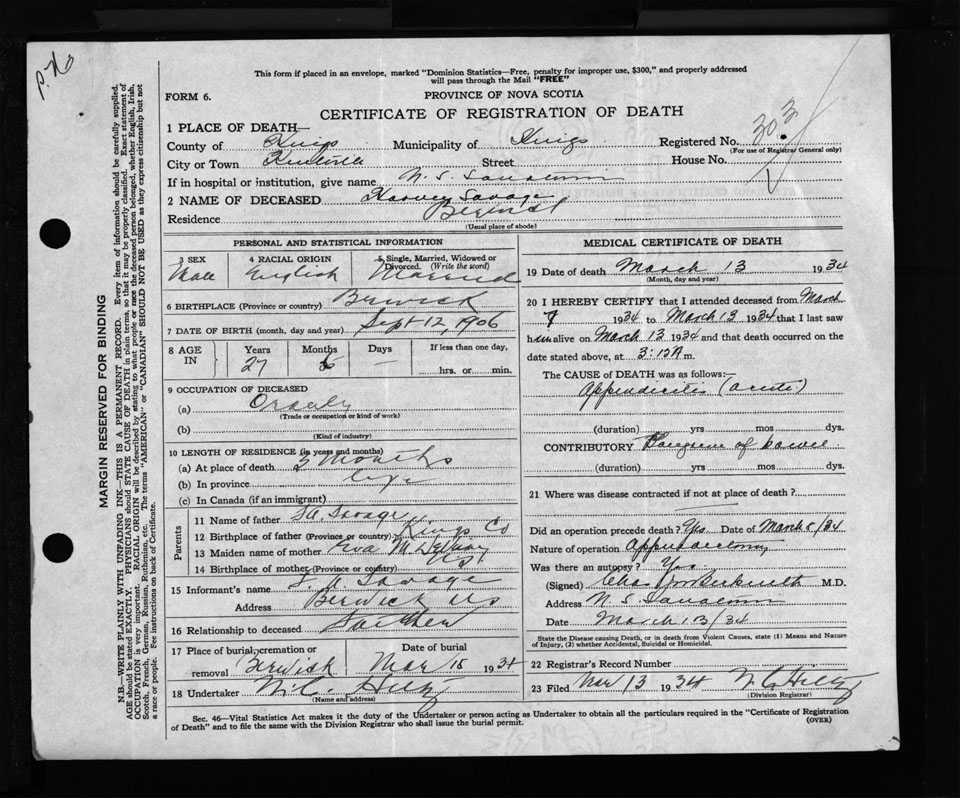 P.Xo
This form if placed in an envelope, marked "Dominion Statistics—Free, penalty for improper use, $300," and properly addressed
will pass through the Mail "FREE"
FORM 6. PROVINCE OF NOVA SCOTIA
CERTIFICATE OF REGISTRATION OF DEATH
303
1 PLACE OF DEATH—
County of Kings Municipality of Kings Registered No.
(For use of Registrar General only)
City or Town Kentville Street House No.
If in hospital or institution, give name N. S. Sanatorium
2 NAME OF DECEASED Harvey Savage
Residence Berwick
(Usual place of abode)
PERSONAL AND STATISTICAL INFORMATION
3 SEX 4 RACIAL ORIGIN 5 Single, Married, Widowed or
Divorced. (Write the word)
Male English Married
6 BIRTHPLACE (Province or country) Berwick
7 DATE OF BIRTH (month, day and year) Sept 12, 1906
8 AGE IN Years Months Days If less than one day,
27 6 — hrs. or min.
9 OCCUPATION OF DECEASED
(a) Orderly
(Trade or occupation or kind of work)
(b)
(Kind of industry)
10 LENGTH OF RESIDENCE (in years and months)
(a) At place of death 3 Months
(b) In province life
(c) In Canada (if an immigrant)
Parents
11 Name of father Savage
12 Birthplace of father (Province or country) Kings Co
13 Maiden name of mother Eva M
14 Birthplace of mother (Province or country) N S
15 Informant's name Savage
Address Berwick NS
16 Relationship to deceased Father
17 Place of burial, cremation or removal Berwick Date of burial Mar 15 1934
18 Undertaker N. C. Hiltz
(Name and address)
MEDICAL CERTIFICATE OF DEATH
19 Date of death March 13 1934
(Month, day and year)
20 I HEREBY CERTIFY that I attended deceased from March
7 1934 to March 13 1934 that I last saw
him alive on March 13 1934 and that death occurred on the
date stated above, at 3:12 A m.
The CAUSE of DEATH was as follows:—
Appendicitis (acute)
(duration) yrs mos dys.
CONTRIBUTORY Gangrene of bowel
(duration) yrs mos dys.
21 Where was disease contracted if not at place of death?
Did an operation precede death? Yes Date of March 8/34
Nature of operation Appendectomy
Was there an autopsy? Yes
(Signed) Chas M.D.
Address N. S. Sanatorium
Date March 13/34
State the Disease causing Death, or in death from Violent Causes, state (1) Means and Nature
of Injury, (2) whether Accidental, Suicidal or Homicidal.
22 Registrar's Record Number
23 Filed Mar 13 1934 N. C. Hiltz
(Division Registrar)
Sec. 46—Vital Statistics Act makes it the duty of the Undertaker or person acting as Undertaker to obtain all the particulars required in the "Certificate of Registration
of Death" and to file the same with the Division Registrar who shall issue the burial permit. (OVER)
MARGIN RESERVED FOR BINDING
N.B.—WRITE PLAINLY WITH UNFADING INK—THIS IS A PERMANENT RECORD. Every item of information should be carefully supplied.
AGE should be stated EXACTLY. PHYSICIANS should STATE CAUSE OF DEATH in plain terms, so that it may be properly classified. Exact statement of
OCCUPATION is very important. RACIAL ORIGIN will be described by stating to what people or race the deceased person belonged, whether English, Irish,
Scotch, French, German, Russian, Ruthenian, etc. The terms "AMERICAN" or "CANADIAN" SHOULD NOT BE USED as they express citizenship but not
a race or people. See instructions on back of Certificate.